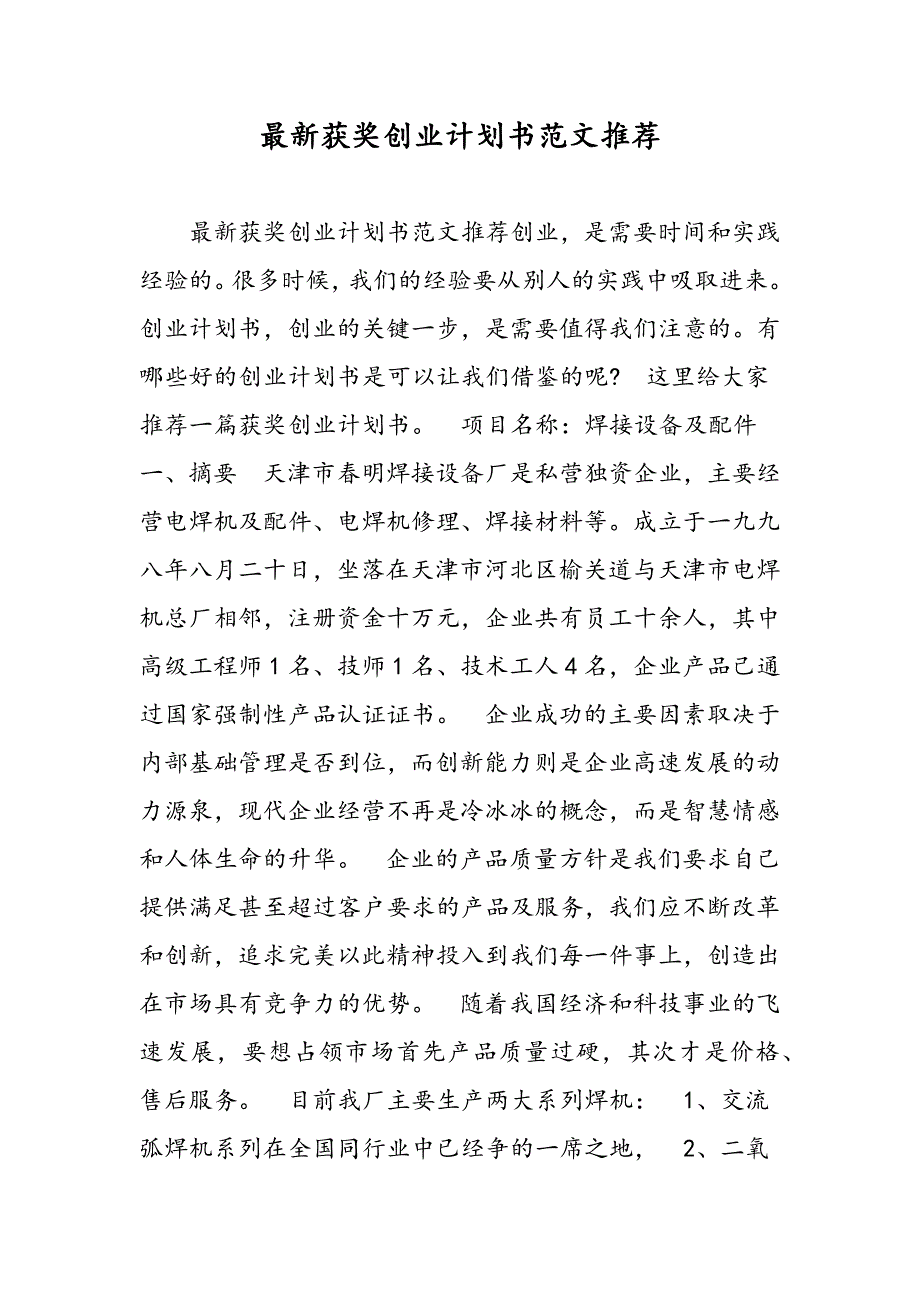 最新获奖创业计划书范文推荐
最新获奖创业计划书范文推荐创业，是需要时间和实践
经验的。很多时候，我们的经验要从别人的实践中吸取进来。
创业计划书，创业的关键一步，是需要值得我们注意的。有
哪些好的创业计划书是可以让我们借鉴的呢?　这里给大家
推荐一篇获奖创业计划书。　项目名称：焊接设备及配件
一、摘要　天津市春明焊接设备厂是私营独资企业，主要经
营电焊机及配件、电焊机修理、焊接材料等。成立于一九九
八年八月二十日，坐落在天津市河北区榆关道与天津市电焊
机总厂相邻，注册资金十万元，企业共有员工十余人，其中
高级工程师1名、技师1名、技术工人4名，企业产品己通
过国家强制性产品认证证书。　企业成功的主要因素取决于
内部基础管理是否到位，而创新能力则是企业高速发展的动
力源泉，现代企业经营不再是冷冰冰的概念，而是智慧情感
和人体生命的升华。　企业的产品质量方针是我们要求自己
提供满足甚至超过客户要求的产品及服务，我们应不断改革
和创新，追求完美以此精神投入到我们每一件事上，创造出
在市场具有竞争力的优势。　随着我国经济和科技事业的飞
速发展，要想占领市场首先产品质量过硬，其次才是价格、
售后服务。　目前我厂主要生产两大系列焊机：　1、交流
弧焊机系列在全国同行业中已经争的一席之地，　2、二氧